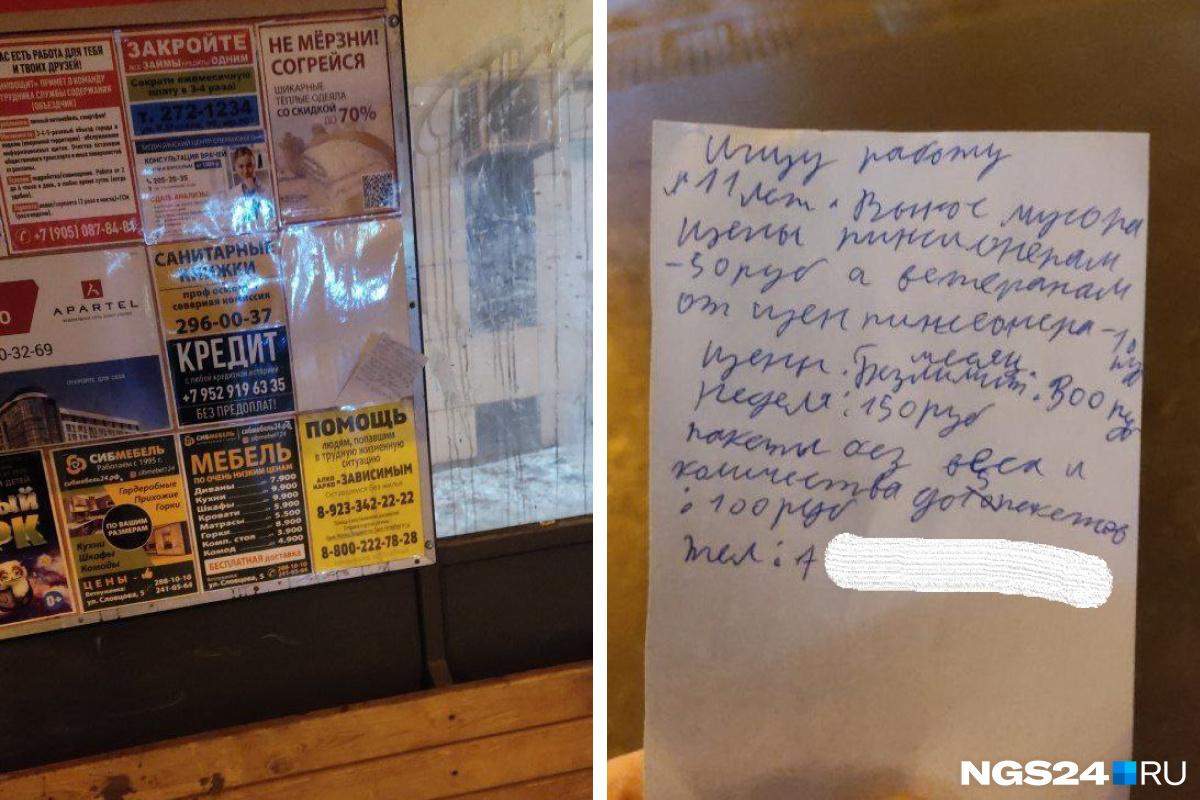 АС ЕСТЬ РАБОТА ДЛЯ ТЕБЯ
И ТВОИХ ДРУЗЕЙ!
ПРИМЕТ В КОМАНДУ
ТРУДНИКА СЛУЖБЫ СОДЕРЖАНИЯ
(ОБЪЕЗДЧИК)
+7 (905) 087-84-8
ЗАКРОЙТЕ
ВСЕ ЗАЙМЫ КРЕДИТЫ ОДНИМ
Сократи ежемесячную
плату в 3-4 раза!
т. 272-1234
КОНСУЛЬТАЦИЯ ВРАЧЕЙ
205-35-35
СДАТЬ АНАЛИЗЫ
НЕ МЁРЗНИ!
СОГРЕЙСЯ
ШИКАРНЫЕ
ТЁПЛЫЕ ОДЕЯЛА
СО СКИДКОЙ
ДО 70%
САНИТАРНЫЕ
КНИЖКИ
проф осмотр
северная комиссия
296-00-37
APARTEL
0-32-69
ОТКРОЙТЕ ДЛЯ СЕБЯ
КРЕДИТ
с любой кредитной историей
+7 952 919 63 35
БЕЗ ПРЕДОПЛАТ!
ЫЙ
РК
0+
СИБМЕБЕЛЬ
Работаем с 1995 г.
сибмебель24.рф
sibmebel124
Гардеробные
Прихожие
Горки
ПО ВАШИМ
РАЗМЕРАМ
Кухни
Шкафы
Комоды
ЦЕНЫ
Ветлужанка,
ул. Словцова, 5
288-10-10
241-05-64
СИБМЕБЕЛЬ
сибмебель24.рф
sibmebel124
МЕБЕЛЬ
ПО ОЧЕНЬ НИЗКИМ ЦЕНАМ
Диваны 7.900
Кухни 9.900
Шкафы 9.900
Кровати 5.900
Матрасы 5.500
Горки 8.900
Комп. стол 3.900
Комод 4.900
БЕСПЛАТНАЯ доставка
Ветлужанка,
ул. Словцова, 5
288-10-10
241-05-64
ПОМОЩЬ
людям, попавшим
в трудную жизненную
ситуацию
АЛКО НАРКО -ЗАВИСИМЫМ
Оставшимся без жилья
8-923-342-22-22
8-800-222-78-28
Ищу работу
я 11 лет. Вынос мусора
цены пинсионерам
-50 руб а ветеранам
от цен пинсеонера -10
руб
цены. Безлимит. месяц. 300 руб
неделя: 150 руб
пакеты без веса и
количества до 5 пакетов
: 100 руб
тел:
NGS24 RU